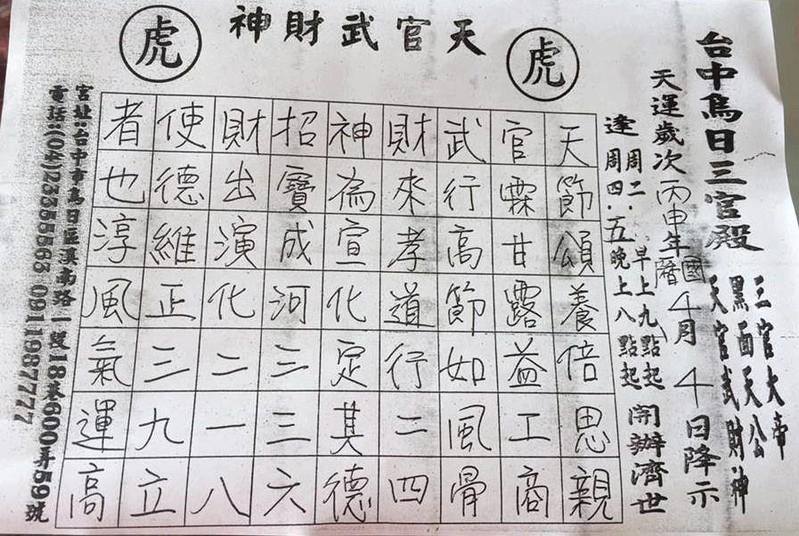 天官武財神
虎
虎
台中烏日三官殿
三官大帝
黑面天公
天官武財神
天運歲次丙申年國曆4月4日降示
逢周二．早上九點起
周四．五晚上八點起
開辦濟世
天節頌養倍思親
官霖甘露益工商
武行高節如風骨
財來孝道行二四
神為宣化定其德
招寶成河三三六
財出演化二一八
使德維正三九立
者也淳風氣運高
宮址：台中市烏日區溪南路一段18巷600弄59號
電話：(04)23355563 0911987777